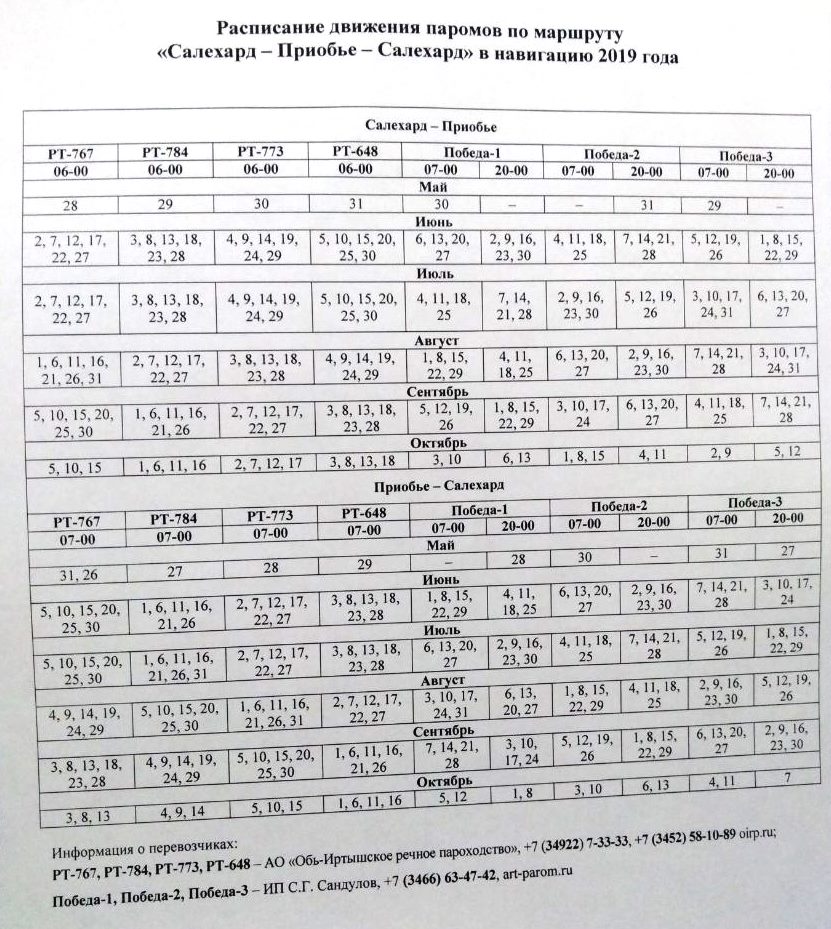 Расписание движения паромов по маршруту
«Салехард – Приобье – Салехард» в навигацию 2019 года
Салехард – Приобье
РТ-767 РТ-784 РТ-773 РТ-648 Победа-1 Победа-2 Победа-3
06-00 06-00 06-00 06-00 07-00 20-00 07-00 20-00 07-00 20-00
Май
28 29 30 31 30 – – 31 29 –
Июнь
2, 7, 12, 17, 3, 8, 13, 18, 4, 9, 14, 19, 5, 10, 15, 20, 6, 13, 20, 2, 9, 16, 4, 11, 18, 7, 14, 21, 5, 12, 19, 1, 8, 15,
22, 27 23, 28 24, 29 25, 30 27 23, 30 25 28 26 22, 29
Июль
2, 7, 12, 17, 3, 8, 13, 18, 4, 9, 14, 19, 5, 10, 15, 20, 4, 11, 18, 7, 14, 2, 9, 16, 5, 12, 19, 3, 10, 17, 6, 13, 20,
22, 27 23, 28 24, 29 25, 30 25 21, 28 23, 30 26 24, 31 27
Август
1, 6, 11, 16, 2, 7, 12, 17, 3, 8, 13, 18, 4, 9, 14, 19, 1, 8, 15, 4, 11, 6, 13, 20, 2, 9, 16, 7, 14, 21, 3, 10, 17,
21, 26, 31 22, 27 23, 28 24, 29 22, 29 18, 25 27 23, 30 28 24, 31
Сентябрь
5, 10, 15, 20, 1, 6, 11, 16, 2, 7, 12, 17, 3, 8, 13, 18, 5, 12, 19, 1, 8, 15, 3, 10, 17, 6, 13, 20, 4, 11, 18, 7, 14, 21,
25, 30 21, 26 22, 27 23, 28 26 22, 29 24 27 25 28
Октябрь
5, 10, 15 1, 6, 11, 16 2, 7, 12, 17 3, 8, 13, 18 3, 10 6, 13 1, 8, 15 4, 11 2, 9 5, 12
Приобье – Салехард
РТ-767 РТ-784 РТ-773 РТ-648 Победа-1 Победа-2 Победа-3
07-00 07-00 07-00 07-00 07-00 20-00 07-00 20-00 07-00 20-00
Май
31, 26 27 28 29 – 28 30 – 31 27
Июнь
5, 10, 15, 20, 1, 6, 11, 16, 2, 7, 12, 17, 3, 8, 13, 18, 1, 8, 15, 4, 11, 6, 13, 20, 2, 9, 16, 7, 14, 21, 3, 10, 17,
25, 30 21, 26 22, 27 23, 28 22, 29 18, 25 27 23, 30 28 24
Июль
5, 10, 15, 20, 1, 6, 11, 16, 2, 7, 12, 17, 3, 8, 13, 18, 6, 13, 20, 2, 9, 16, 4, 11, 18, 7, 14, 21, 5, 12, 19, 1, 8, 15,
25, 30 21, 26, 31 22, 27 23, 28 27 23, 30 25 28 26 22, 29
Август
4, 9, 14, 19, 5, 10, 15, 20, 1, 6, 11, 16, 2, 7, 12, 17, 3, 10, 17, 6, 13, 1, 8, 15, 4, 11, 18, 2, 9, 16, 5, 12, 19,
24, 29 25, 30 21, 26, 31 22, 27 24, 31 20, 27 22, 29 25 23, 30 26
Сентябрь
3, 8, 13, 18, 4, 9, 14, 19, 5, 10, 15, 20, 1, 6, 11, 16, 7, 14, 21, 3, 10, 5, 12, 19, 1, 8, 15, 6, 13, 20, 2, 9, 16,
23, 28 24, 29 25, 30 21, 26 28 17, 24 26 22, 29 27 23, 30
Октябрь
3, 8, 13 4, 9, 14 5, 10, 15 1, 6, 11, 16 5, 12 1, 8 3, 10 6, 13 4, 11 7
Информация о перевозчиках:
РТ-767, РТ-784, РТ-773, РТ-648 – АО «Обь-Иртышское речное пароходство», +7 (34922) 7-33-33, +7 (3452) 58-10-89 oirp.ru;
Победа-1, Победа-2, Победа-3 – ИП С.Г. Сандулов, +7 (3466) 63-47-42, art-parom.ru